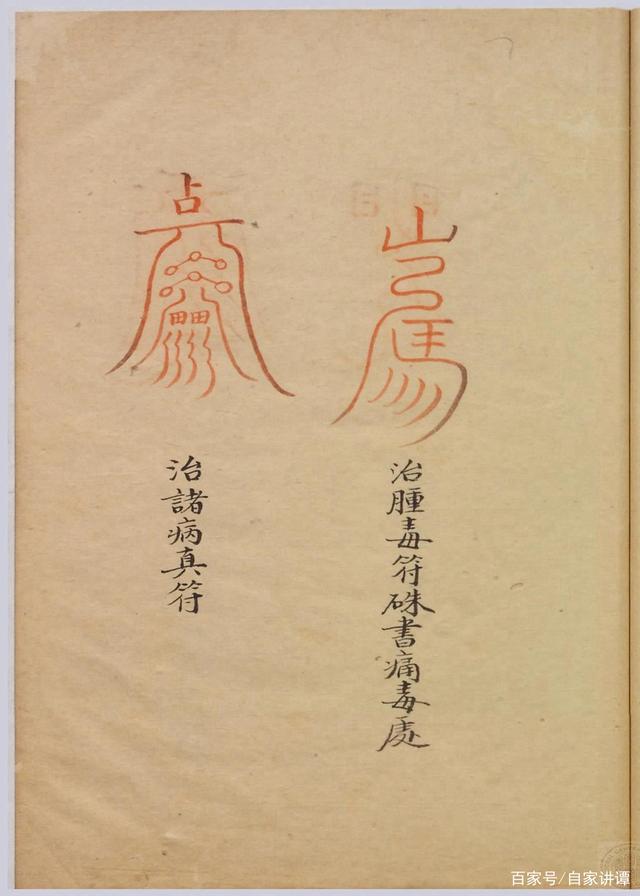 治腫毒符硃書痛毒處
治諸病真符
百家号/自家讲谭